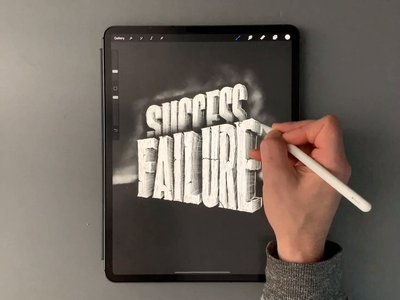 Gallery
SUCCESS
FAILURE